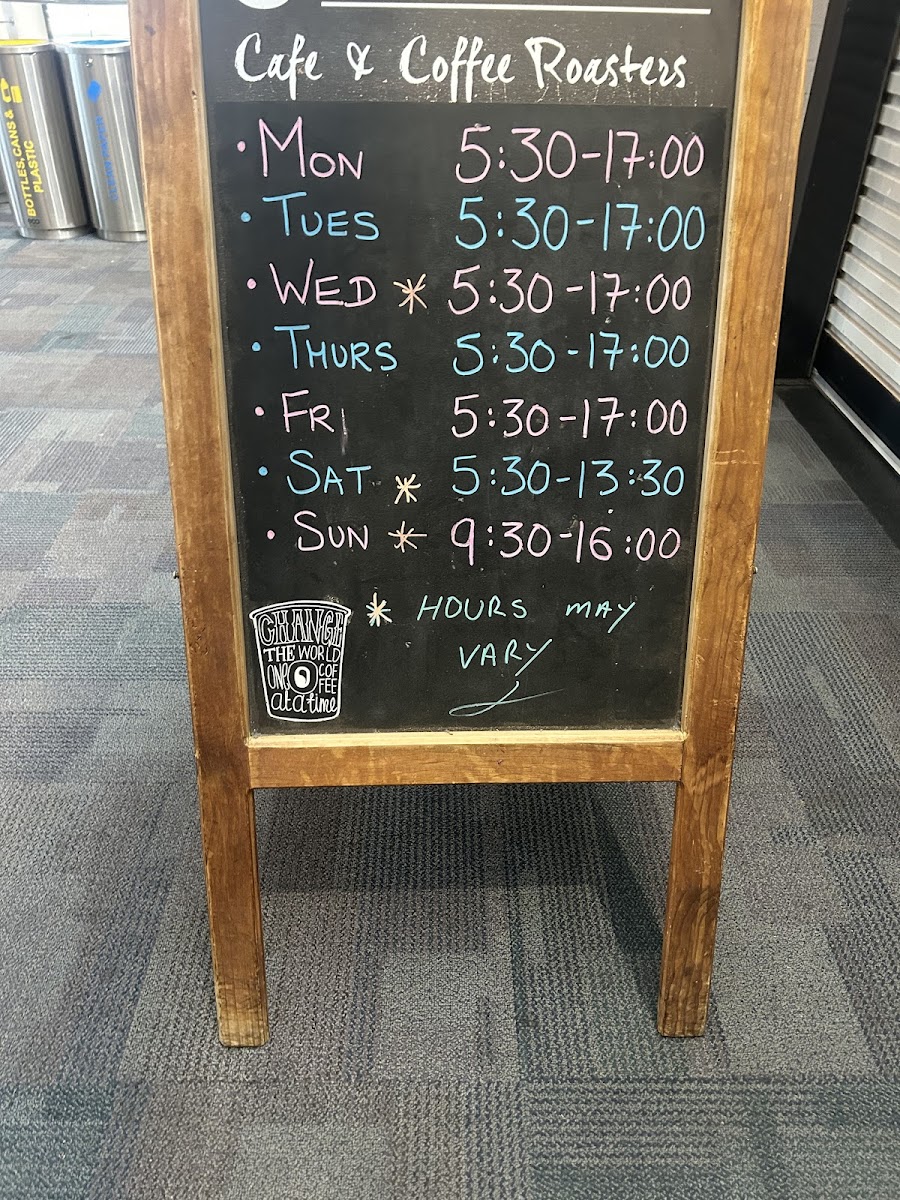 Cafe & Coffee Roasters
• MON 5:30-17:00
• TUES 5:30-17:00
• WED * 5:30-17:00
• THURS 5:30-17:00
• FRI 5:30-17:00
• SAT * 5:30-13:30
• SUN * 9:30-16:00
* HOURS MAY
VARY
CHANGE
THE WORLD
ONE COF
FEE
at a time
BOTTLES, CANS &
PLASTIC